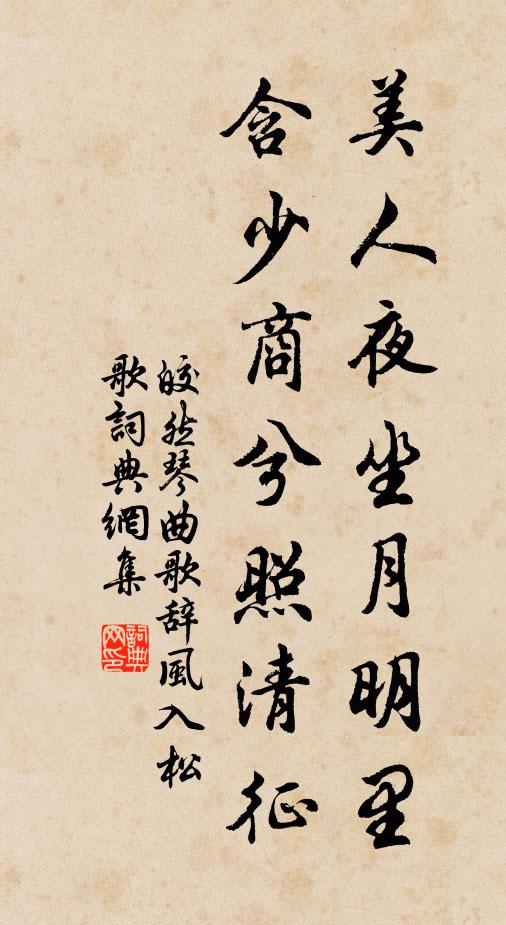 美人夜坐月明里
含少商兮照清征
皎然琴曲歌辞風入松
歌詞典網集
詞典網印